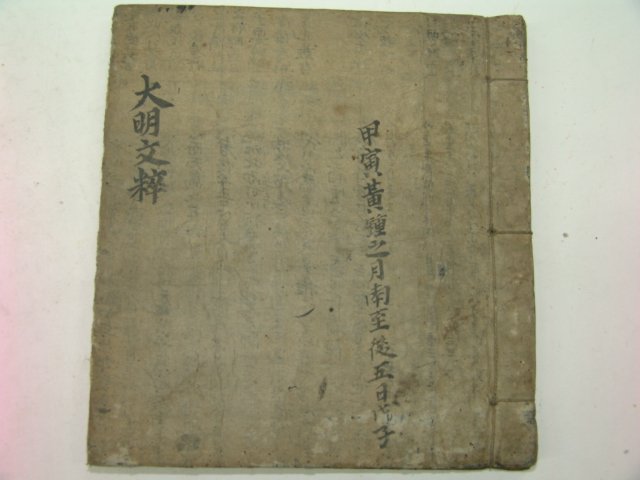 甲寅黃鍾之月南至後五日階子
大明文粹